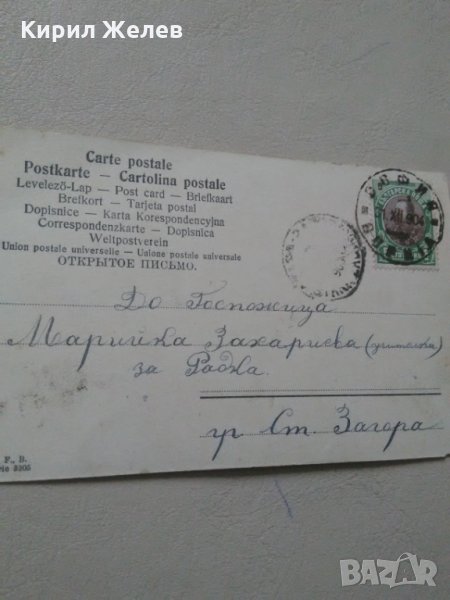 Кирил Желев
Carte postale
Postkarte — Cartolina postale
Levelező-Lap — Post card — Briefkaart
Brefkort — Tarjeta postal
Dopisnice — Karta Korespondencyjna
Correspondenzkarte — Dopisnica
Weltpostverein
Union postale universelle — Unione postale universale
ОТКРЫТОЕ ПИСЬМО.
До Госпожица
Марийка Захариева (учителка)
за Радка
гр Ст. Загора
F., B.
rie 3905
BAZAR